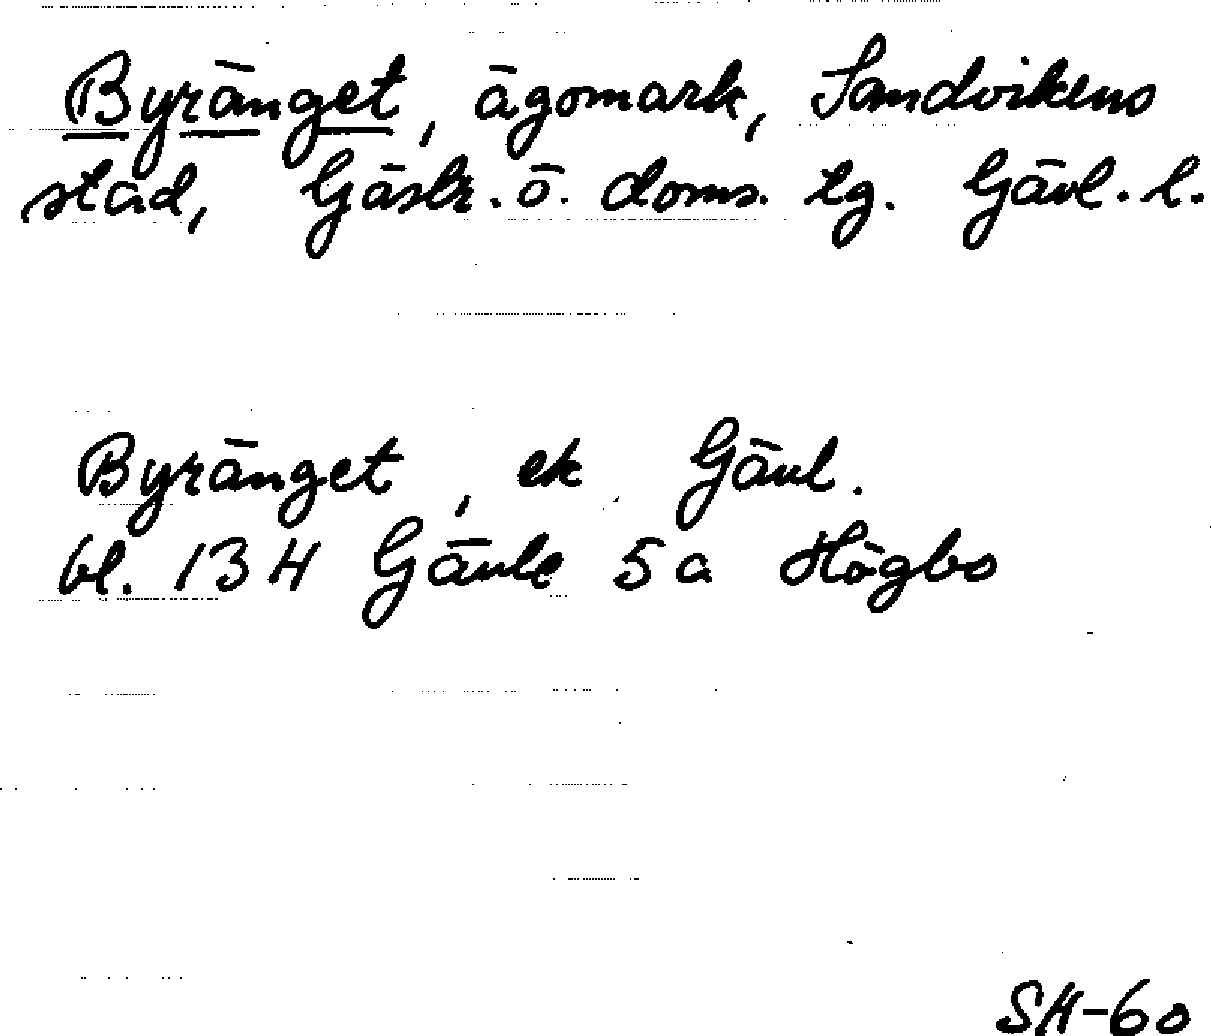 Byränget, ägomark, Sandvikens
stad, Gästr. ö. doms. tg. Gävl. l.
Byränget, ek Gävl.
bl. 13 H Gävle 5a Högbo
SH-60